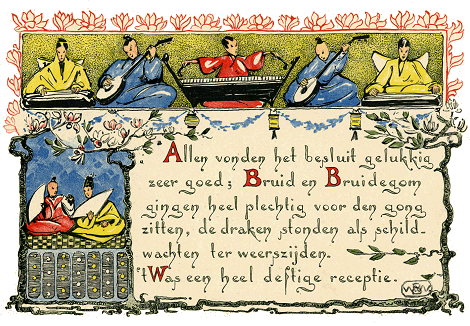 „Allen vonden het besluit gelukkig
zeer goed; Bruid en Bruidegom
gingen heel plechtig voor den gong
zitten, de draken stonden als schild-
wachten ter weerszijden.
't Was een heel deftige receptie.